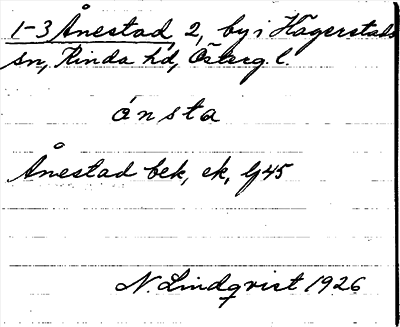 1-3 Ånestad 2, by i Hägerstads
sn, Kinda hd, Österg. l.
ónsta
Ånestad bek, ek, Gj45
N. Lindqvist 1926